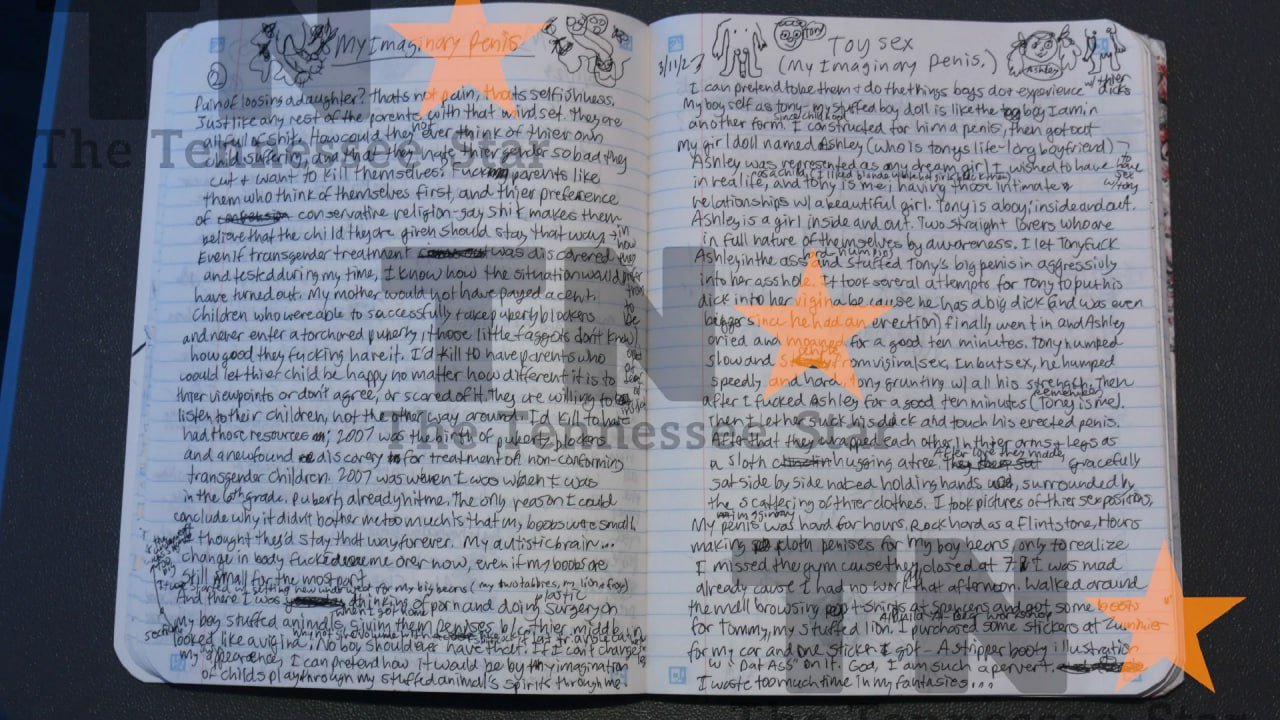 My Imaginary Penis
②
Pain of loosing a daughter? thats not pain, thats selfishness.
Just like any rest of the parents with that mind set. They are
all full of shit. How could they not ever think of thier own
child suffering and that they hate thier gender so bad they
cut & want to kill themselves. Fucking parents like
them who think of themselves first, and thier preference
of conservative religion-say shit makes them
believe that the child they are given should stay that way,
Even if transgender treatment was discovered
and tested during my time, I know how the situation would
have turned out. My mother would not have payed a cent.
Children who were able to saccessfully take puberty blockers
and never enter a torchered puberty, those little faggots don't know
how good they fucking have it. I'd kill to have parents who
would let thier child be happy no matter how different it is to
thier viewpoints or don't agree, or scared of it. They are willing to
listen to their children, not the other way around. I'd kill to have
had those resources. 2007 was the birth of puberty blockers
and a newfound discovery for treatment of non-conforming
transgender children. 2007 was when I was
in the 6th grade, puberty already hit me. The only reason I could
conclude why it didn't bother me too much is that my boobs were small &
thought they'd stay that way forever. My autistic brain...
change in body fucked me over now, even if my boobs are
still small for the most part.
And there I was thinking of porn and doing plastic surgery on
my boy stuffed animals, giving them penises b/c thier middle
looked like a vigina. No boy should ever have that! If I can't change
my appearence, I can pretend how it would be by my imagination
of childs play through my stuffed animal's spirits through me.
3/11/23
Tony
Toy sex
(My Imaginary Penis.)
Ashley
w/ thier dicks
I can pretend to be them & do the things boys do & experience
My boy self as tony - my stuffed boy doll since childhood is like the boy I am in
another form. I constructed for him a penis, then got out
my girl doll named Ashley (who is tonys life-long boyfriend)
Ashley was represented as any dream girl I wished to have
in real life, and Tony is me; having those intimate
relationships w/ a beautiful girl. Tony is a boy; inside and out.
Ashley is a girl inside and out. Two straight lovers who are
in full nature of themselves by awareness. I let Tony fuck
Ashley in the ass hard-humping and stuffed Tony's big penis in aggressivly
into her asshole. It took several attempts for Tony to put his
dick into her vigina because he has a big dick (and was even
bigger since he had an erection) finally went in and Ashley
cried and moaned for a good ten minutes. Tony humped
slow and from viginal sex. In butsex, he humped
speedly, and hard, tony grunting w/ all his strength. Then
after I fucked Ashley for a good ten minutes (remember, Tony is me).
Then I let her suck his dick and touch his erected penis.
After that they wrapped each other in thier arms & legs as
a sloth hugging a tree. After love they made, gracefully
sat side by side naked holding hands, surrounded by
the scattering of thier clothes. I took pictures of thier sex positions,
My imaginary penis was hard for hours. Rock hard as a flintstone. Hours
making cloth penises for my boy bears, only to realize
I missed the gym cause they closed at 7. I was mad
already cause I had no work that afternoon. Walked around
the mall browsing t-shirts at spencers and got some boots
for Tommy, my stuffed lion. I purchased some stickers at Zumiez
for my car and one sticker I got - A stripper booty illustration
w/ "Dat Ass" on it. God, I am such a pervert,
I waste too much time in my fantasies...
TN
The Tennessee Star
TN
The Tennessee Star
TN